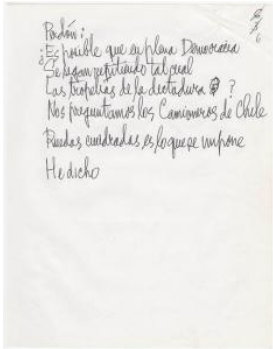 6
Perdón:
¿Es posible que en plena Democracia
Se sigan repitiendo tal cual
Las tropelías de la dictadura ?
Nos preguntamos los Camioneros de Chile
Ruedas cuadradas es lo que se impone
He dicho